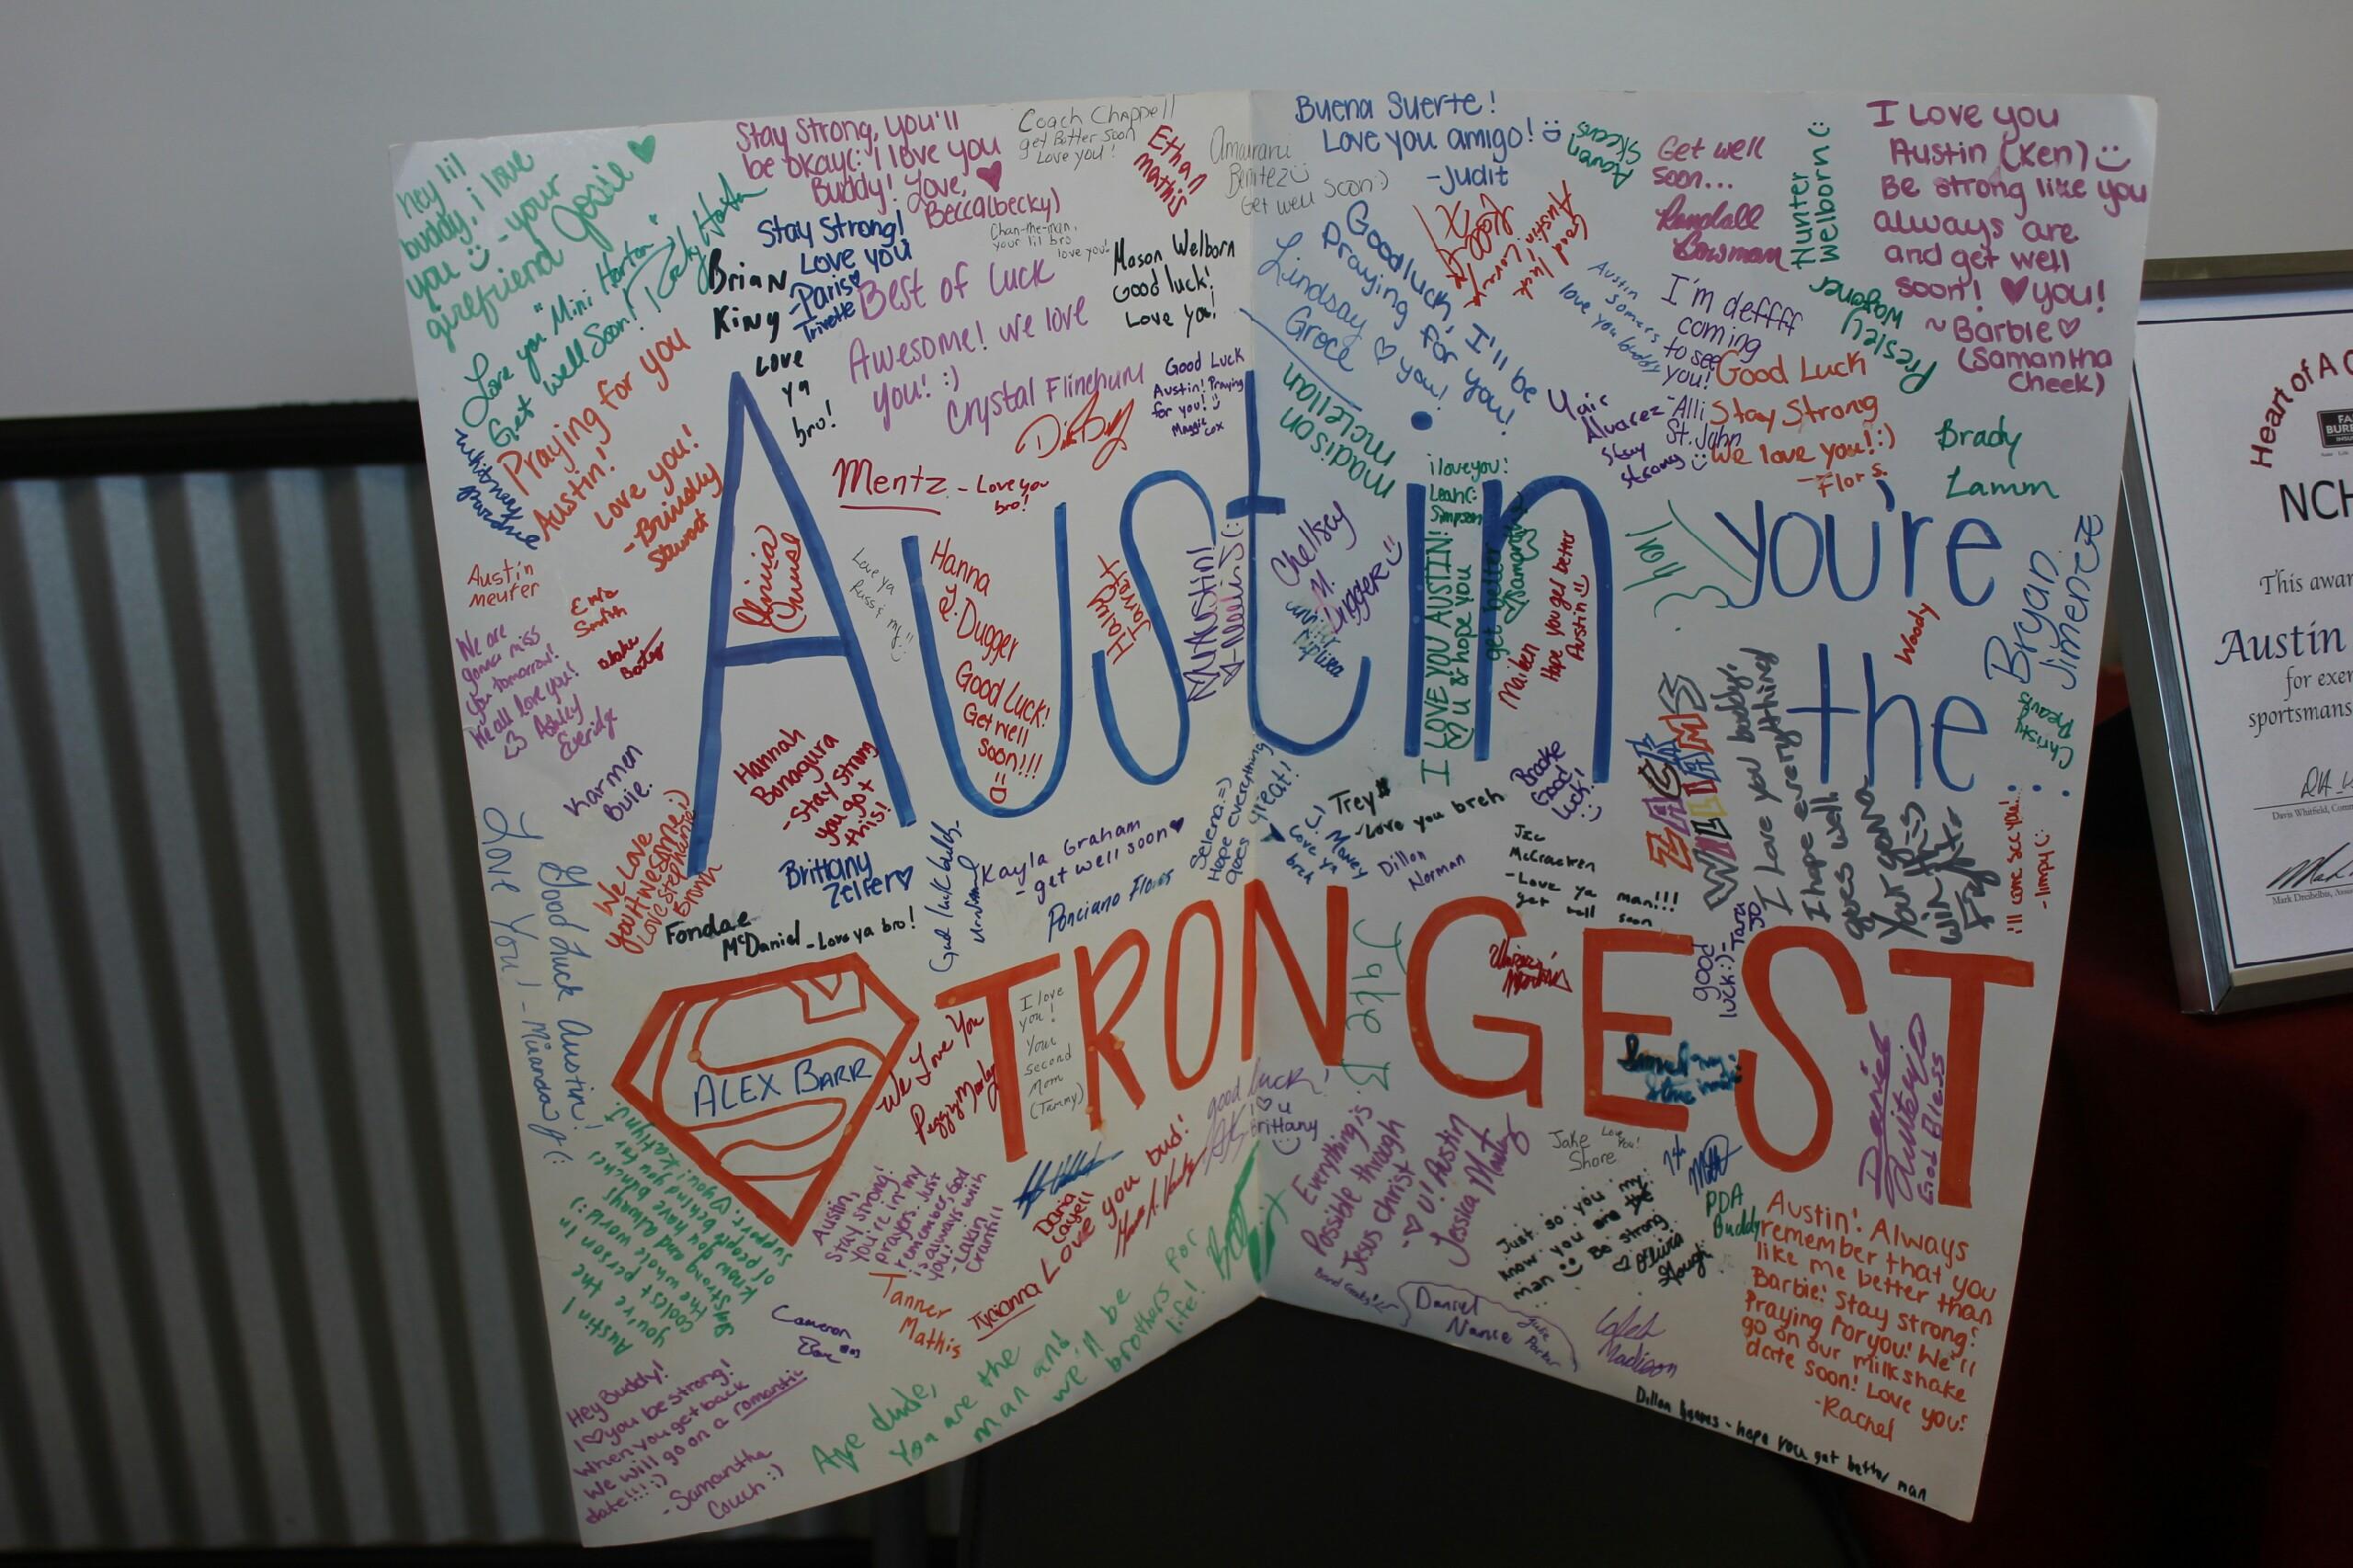 Austin you're
the :
STRONGEST
ALEX BARR
hey lil
buddy, i love
you - your
girlfriend Josie
Love you "Mini Horton"
Get well Soon!
Stay Strong, you'll
be okay(: i love you
Buddy! Love,
Becca(becky)
Coach Chappell
get Better soon
Love you!
Ethan
mathis
Amairani
Benitez
Get well soon:)
Buena Suerte!
Love you amigo!
-Judit
Get well
soon...
Randall
Bowman
Hunter
Welborn (:
I Love you
Austin (Ken)
Be strong like you
always are
and get well
soon! you!
~Barbie
(Samantha
Cheek)
Stay Strong!
Love you
-Paris
Trivette
Brian
King
Love
ya
bro!
Chan-the-man,
your lil bro
love you!
Mason Welborn
Good luck!
Love ya!
Best of luck
Awesome! we love
you! :)
Crystal Flinchum
Good Luck
Austin! Praying
for you!
Maggie
Cox
Goodluck, I'll be
praying for you!
Lindsay you!
Groce
madison
mclellan
Austin
Somers
love you buddy
I'm deffff
coming
to see
you!
-Alli
St. John
Presley
Wagoner
Yair
Alvarez
Stay
strong
Good Luck
Stay Strong
We love you!:)
-Flor S.
Brady
Lamm
Praying for you
Austin!
Love you!
-Brindly
Stewart
Whitney
Pardue
Mentz - Love you
bro!
i love you!
Leah(:
Simpson
Austin
meurer
We are
gonna miss
you tomorrow!
We all love you!
<3 Ashley
Everidge
Olivia
Love ya
Hanna
Y. Dugger
Good Luck!
Get well
soon!!!
Haley
Jarret
Chelsey
M.
Dugger
I LOVE YOU AUSTIN!
u & hope you
get better
Samantha
Maiken
Hope you get better
Austin
Troy
Woody
Bryan
Jimenez
Christy
ZACK
WILLIAMS
I Love you buddy,
I hope everything
goes well.
Your gonna
win this
Fight
ill come see you!
-Jimpy(:
Karmen
Buie.
We Love
you Awesome:)
Love Stephanie
Branch
Hannah
Bonagura
-Stay strong
you got
this!
Brittany
Zeller
Fondae
McDaniel - Love ya bro!
Kayla Graham
- get well soon
Ponciano Flores
Selena =)
Hope everything
goes great!
Trey
-Love you breh
CJ Money
Love ya
breh
Dillon
Norman
Brooke
Good
Luck!
McCracken
-Love ya man!!!
get well soon
good
luck:)-
Tara
Jo
Good Luck Austin!
Love You! -Miranda
We Love You
Peggy Manley
I love
you!
Your
second
Mom
(Tammy)
Jake B
good luck!
I u
Brittany
Daniel
God Bless
Austin!
you're the
coolest person in
the whole world:)
Stay strong and always
know you have a bunch
of people behind you for
support. you! Kaitlyn
Austin,
stay strong!
You're in my
prayers. Just
remember, God
is always with
you!
-Lakin
Cranfill
Daria
Cagell
Love you bud!
Tanner
Mathis
Cameron
Everything is
Possible through
Jesus Christ
- U! Austin
Jessica
Jake
Shore
Love
You!
Just so you
know you are my
man Be strong
Olivia
Gough
PDA
Buddy
Austin! Always
remember that you
like me better than
Barbie! Stay strong!
Praying for you! We'll
go on our milkshake
date soon! Love you!
-Rachel
Hey Buddy!
I you be strong!
When you get back
We will go on a romantic
date!!!:)
-Samantha
Couch:)
Aye dude,
You are the
man and
we'll be
brothers for
life!
Daniel
Nance
Jake
Parker
Caleb
Madison
Dillon - hope you get better man
Heart of A C
NCH
This awar
Austin
for exer
sportsmans
Davis Whitfield, Comm
Mark Dreibelbis, Asso